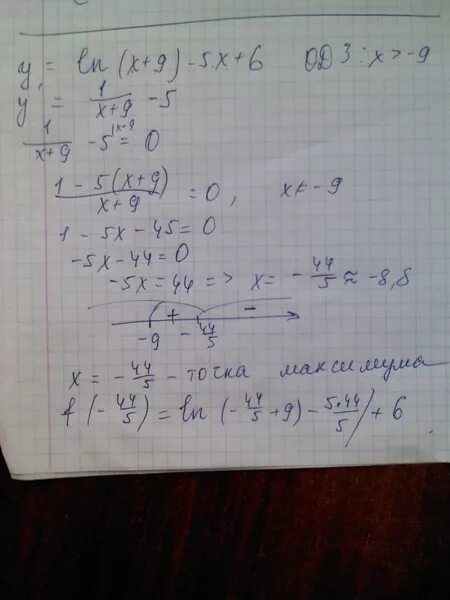 y = ln (x+9) - 5x + 6 ОДЗ: x > -9
y' = 1/(x+9) - 5
1/(x+9) - 5 |x+9 = 0
(1 - 5(x+9))/(x+9) = 0, x ≠ -9
1 - 5x - 45 = 0
-5x - 44 = 0
-5x = 44 => x = -44/5 ≈ -8,8
+ -
-9 -44/5
x = -44/5 - точка максимума
f(-44/5) = ln(-44/5 + 9) - 5·44/5 + 6